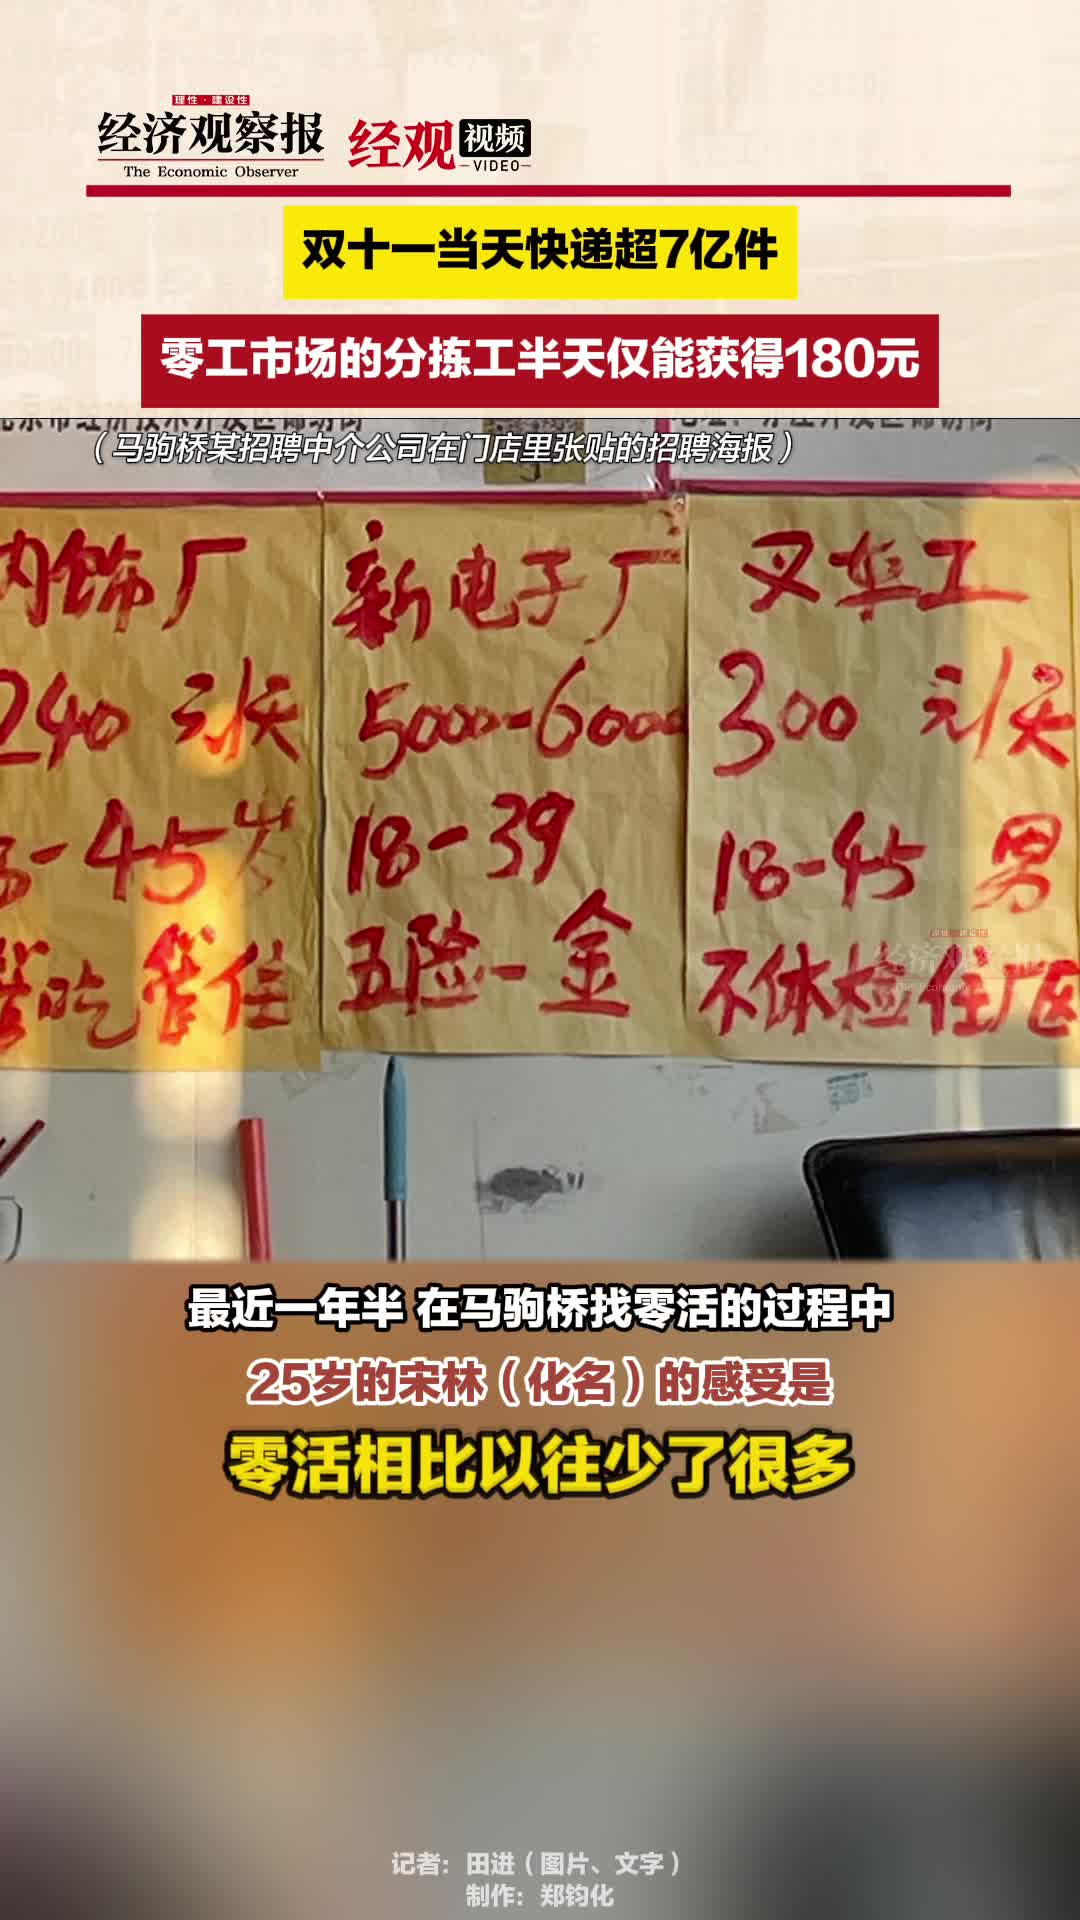 理性·建设性
经济观察报
The Economic Observer
经观视频
VIDEO
双十一当天快递超7亿件
零工市场的分拣工半天仅能获得180元
（马驹桥某招聘中介公司在门店里张贴的招聘海报）
内饰厂
240元/天
-45岁
管吃管住
新电子厂
5000-6000
18-39
五险一金
叉车工
300元/天
18-45 男
不体检 住厂区
最近一年半 在马驹桥找零活的过程中
25岁的宋林（化名）的感受是
零活相比以往少了很多
记者：田进（图片、文字）
制作：郑钧化